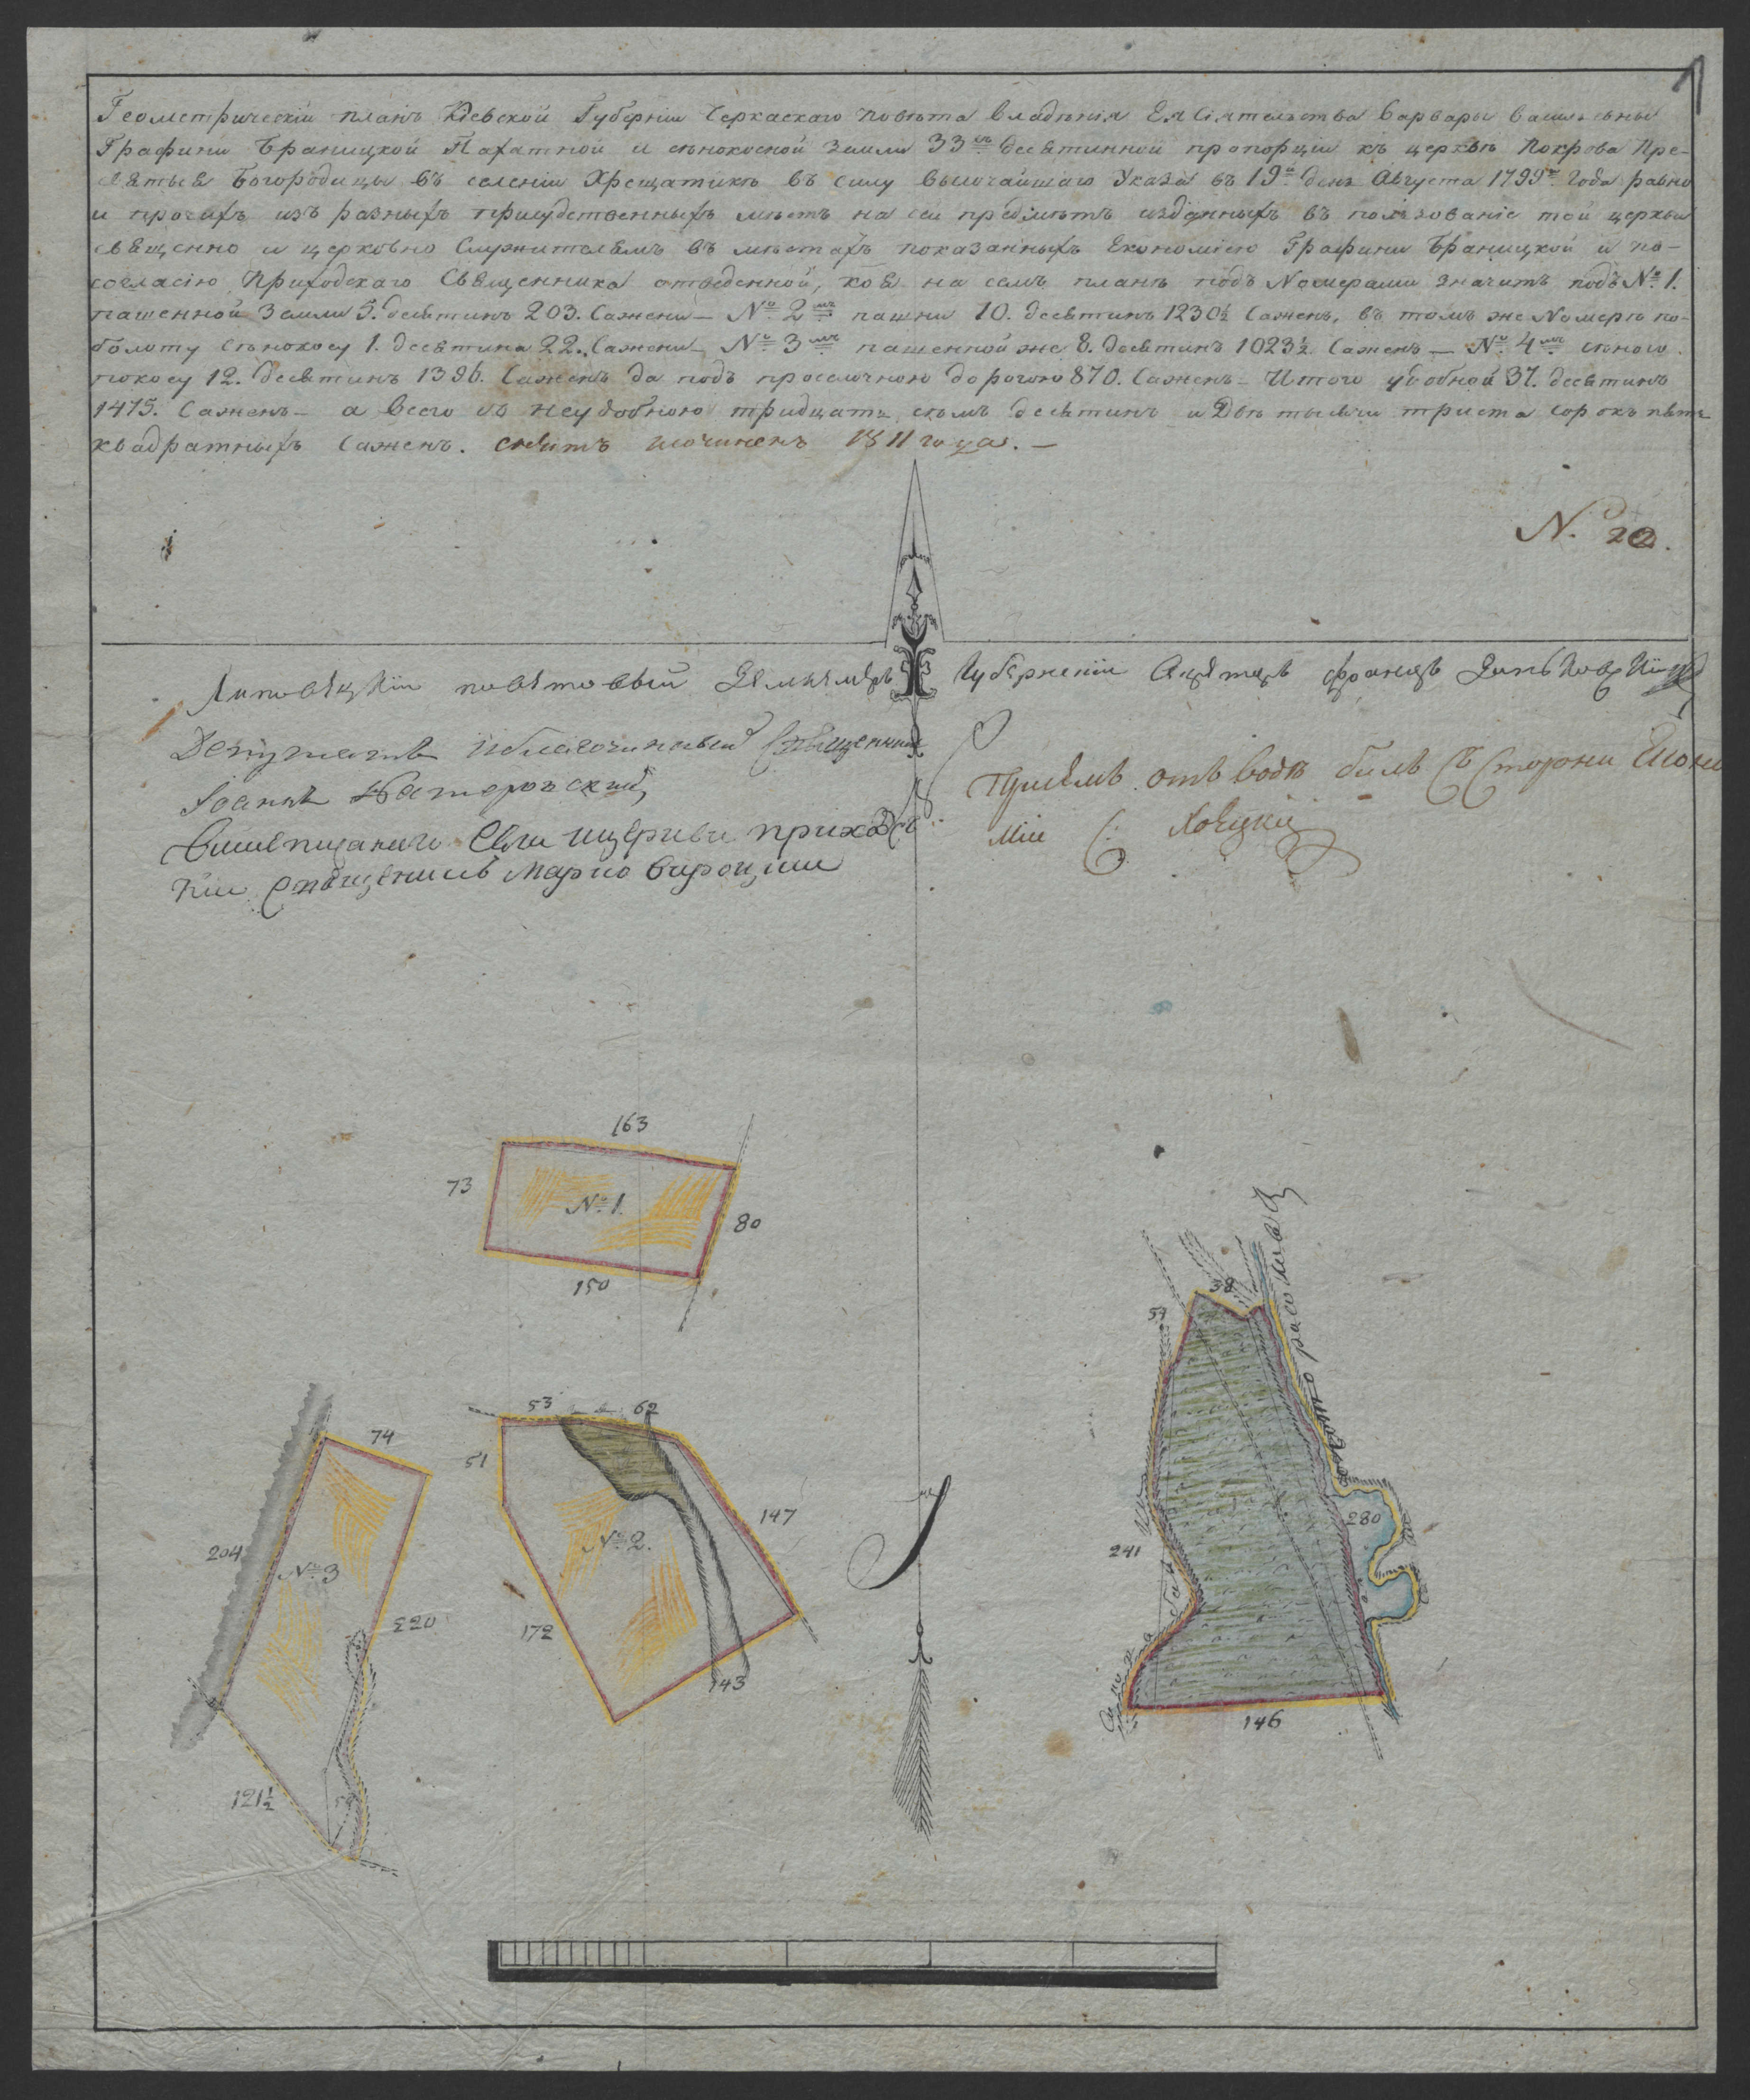 Геометрическій планъ Кіевской Губерніи Черкаскаго повѣта владѣнія Ея Сіятельства Варвары Васильевны
Графини Браницкой Пахатной и сѣнокосной Земли 33хъ десятинной пропорціи къ церквѣ Покрова Пре-
святыя Богородицы въ селеніи Хрещатикѣ въ силу высочайшаго Указа въ 19й день Августа 1799го Года равно
и прочихъ изъ разныхъ присудственныхъ мѣстъ на сей предмѣтъ изданныхъ въ пользованіе той церкви
священно и церковно Служителямъ въ мѣстахъ показанныхъ Економіею Графини Браницкой и по-
согласію Приходскаго Священника отведенной, коя на семъ планѣ подъ Номерами значитъ подъ №1.
пашенной Земли 5. десятинъ 203. Сажени — № 2мъ пашни 10. десятинъ 1230½ Сажень, въ томъ же Номерѣ по-
болоту сѣнокосу 1. десятина 22. Сажени — № 3мъ пашенной же 8. десятинъ 1023½ Саженъ — № 4мъ сѣнного
покосу 12. десятинъ 1396. Саженъ да подъ проселочною дорогою 870. Саженъ — Итого удобной 37. десятинъ
1475. Саженъ — а всего съ неудобною тридцать сѣмъ десятинъ и Двѣ тысячи триста сорокъ пять
квадратныхъ Саженъ. снятъ и сочиненъ 1811 года. —
N. 22.
Липовецкій повѣтовый Землемѣръ Губернскій Секретарь Францъ
Депутатъ и благочинный Священникъ
Іоаннъ
Вишеписаного Села церкви приходс
кій Священникъ Марко
Пріемъ отъ водѣ билъ Съ Сторони Еконо
міи
163
73
№ 1.
80
150
38
57
53
62
51
74
147
№ 2.
204
№ 3
280
241
220
172
143
146
121½